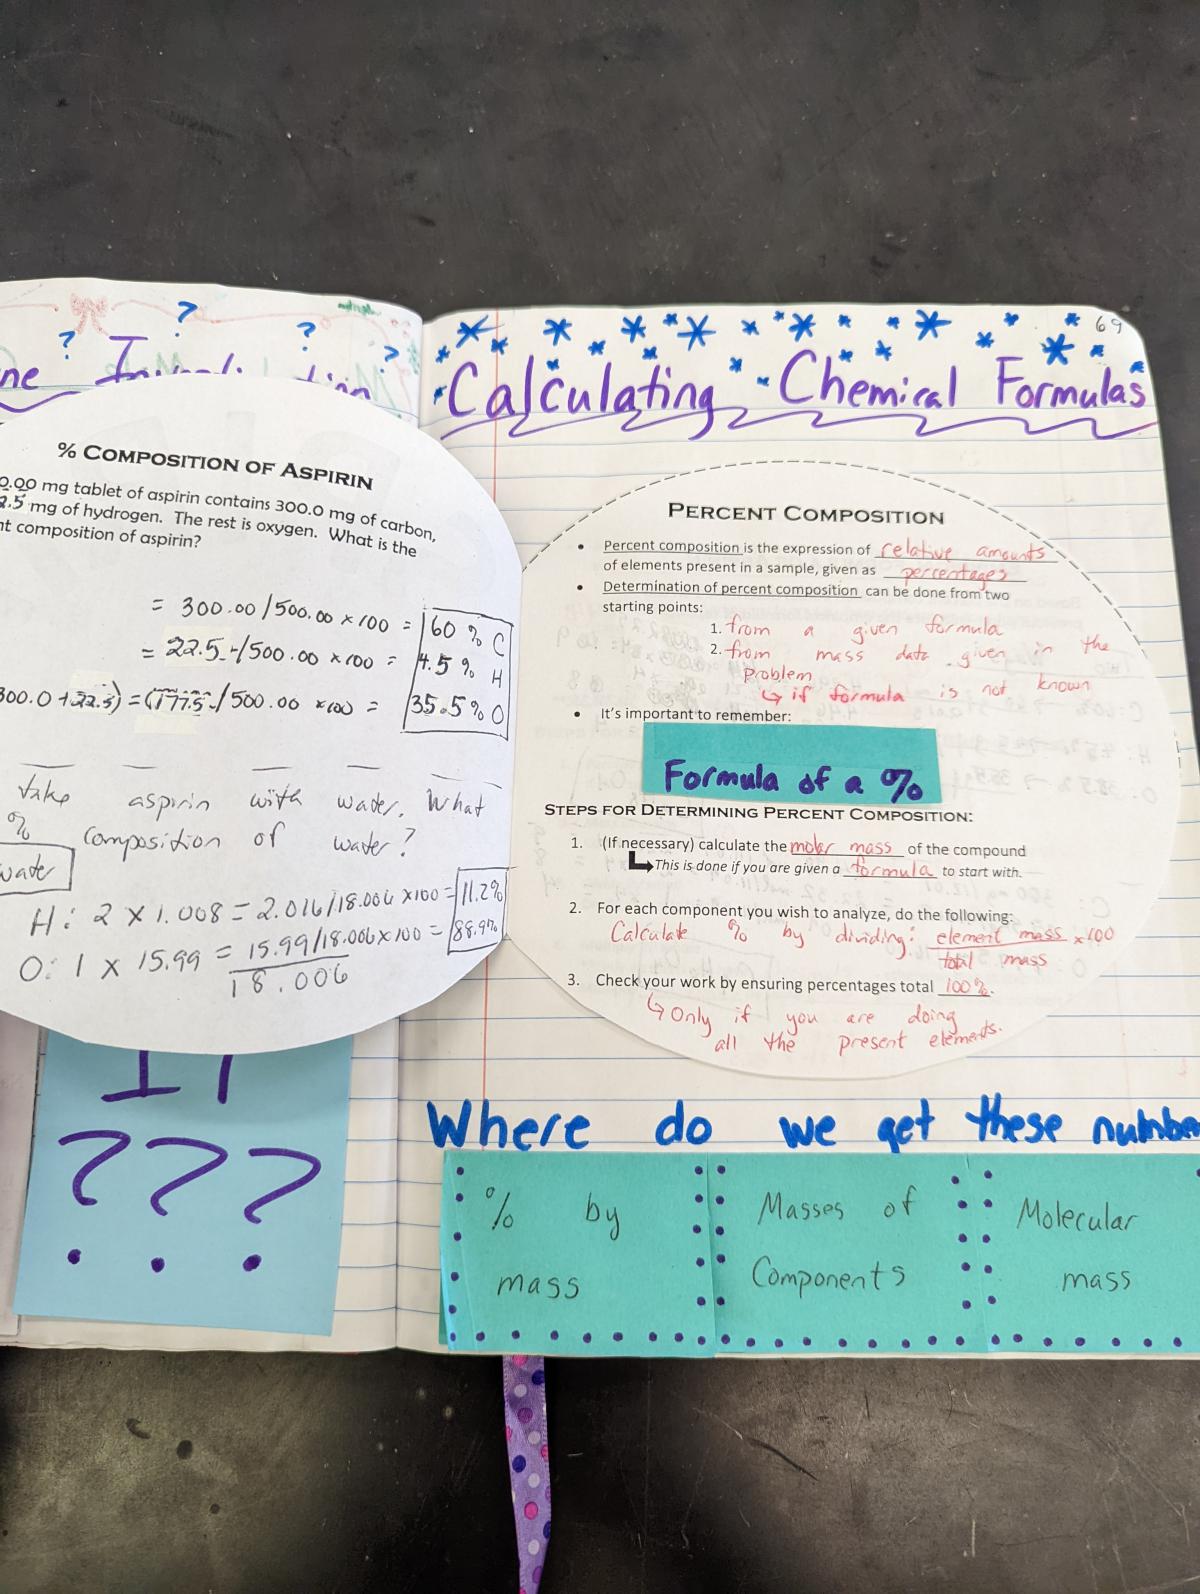 ? ? ? ?
% COMPOSITION OF ASPIRIN
0.00 mg tablet of aspirin contains 300.0 mg of carbon,
2.5 mg of hydrogen. The rest is oxygen. What is the
nt composition of aspirin?
= 300.00/500.00 x 100 = 60 % C
= 22.5 /500.00 x 100 = 4.5 % H
300.0 + 22.5) = (177.5 /500.00 x100 = 35.5% O
take aspirin with water. What
% composition of water?
water
H: 2 x 1.008 = 2.016/18.006 x100 = 11.2%
O: 1 x 15.99 = 15.99/18.006 x 100 = 88.9%
18.006
IT
???
69
Calculating Chemical Formulas
PERCENT COMPOSITION
• Percent composition is the expression of relative amounts
of elements present in a sample, given as percentages
• Determination of percent composition can be done from two
starting points:
1. from a given formula
2. from mass data given in the
problem
↳ if formula is not known
• It's important to remember:
Formula of a %
STEPS FOR DETERMINING PERCENT COMPOSITION:
1. (If necessary) calculate the molar mass of the compound
This is done if you are given a formula to start with.
2. For each component you wish to analyze, do the following:
Calculate % by dividing: element mass x100
total mass
3. Check your work by ensuring percentages total 100%.
↳ Only if you are doing
all the present elements.
Where do we get these number
% by
mass
Masses of
Components
Molecular
mass